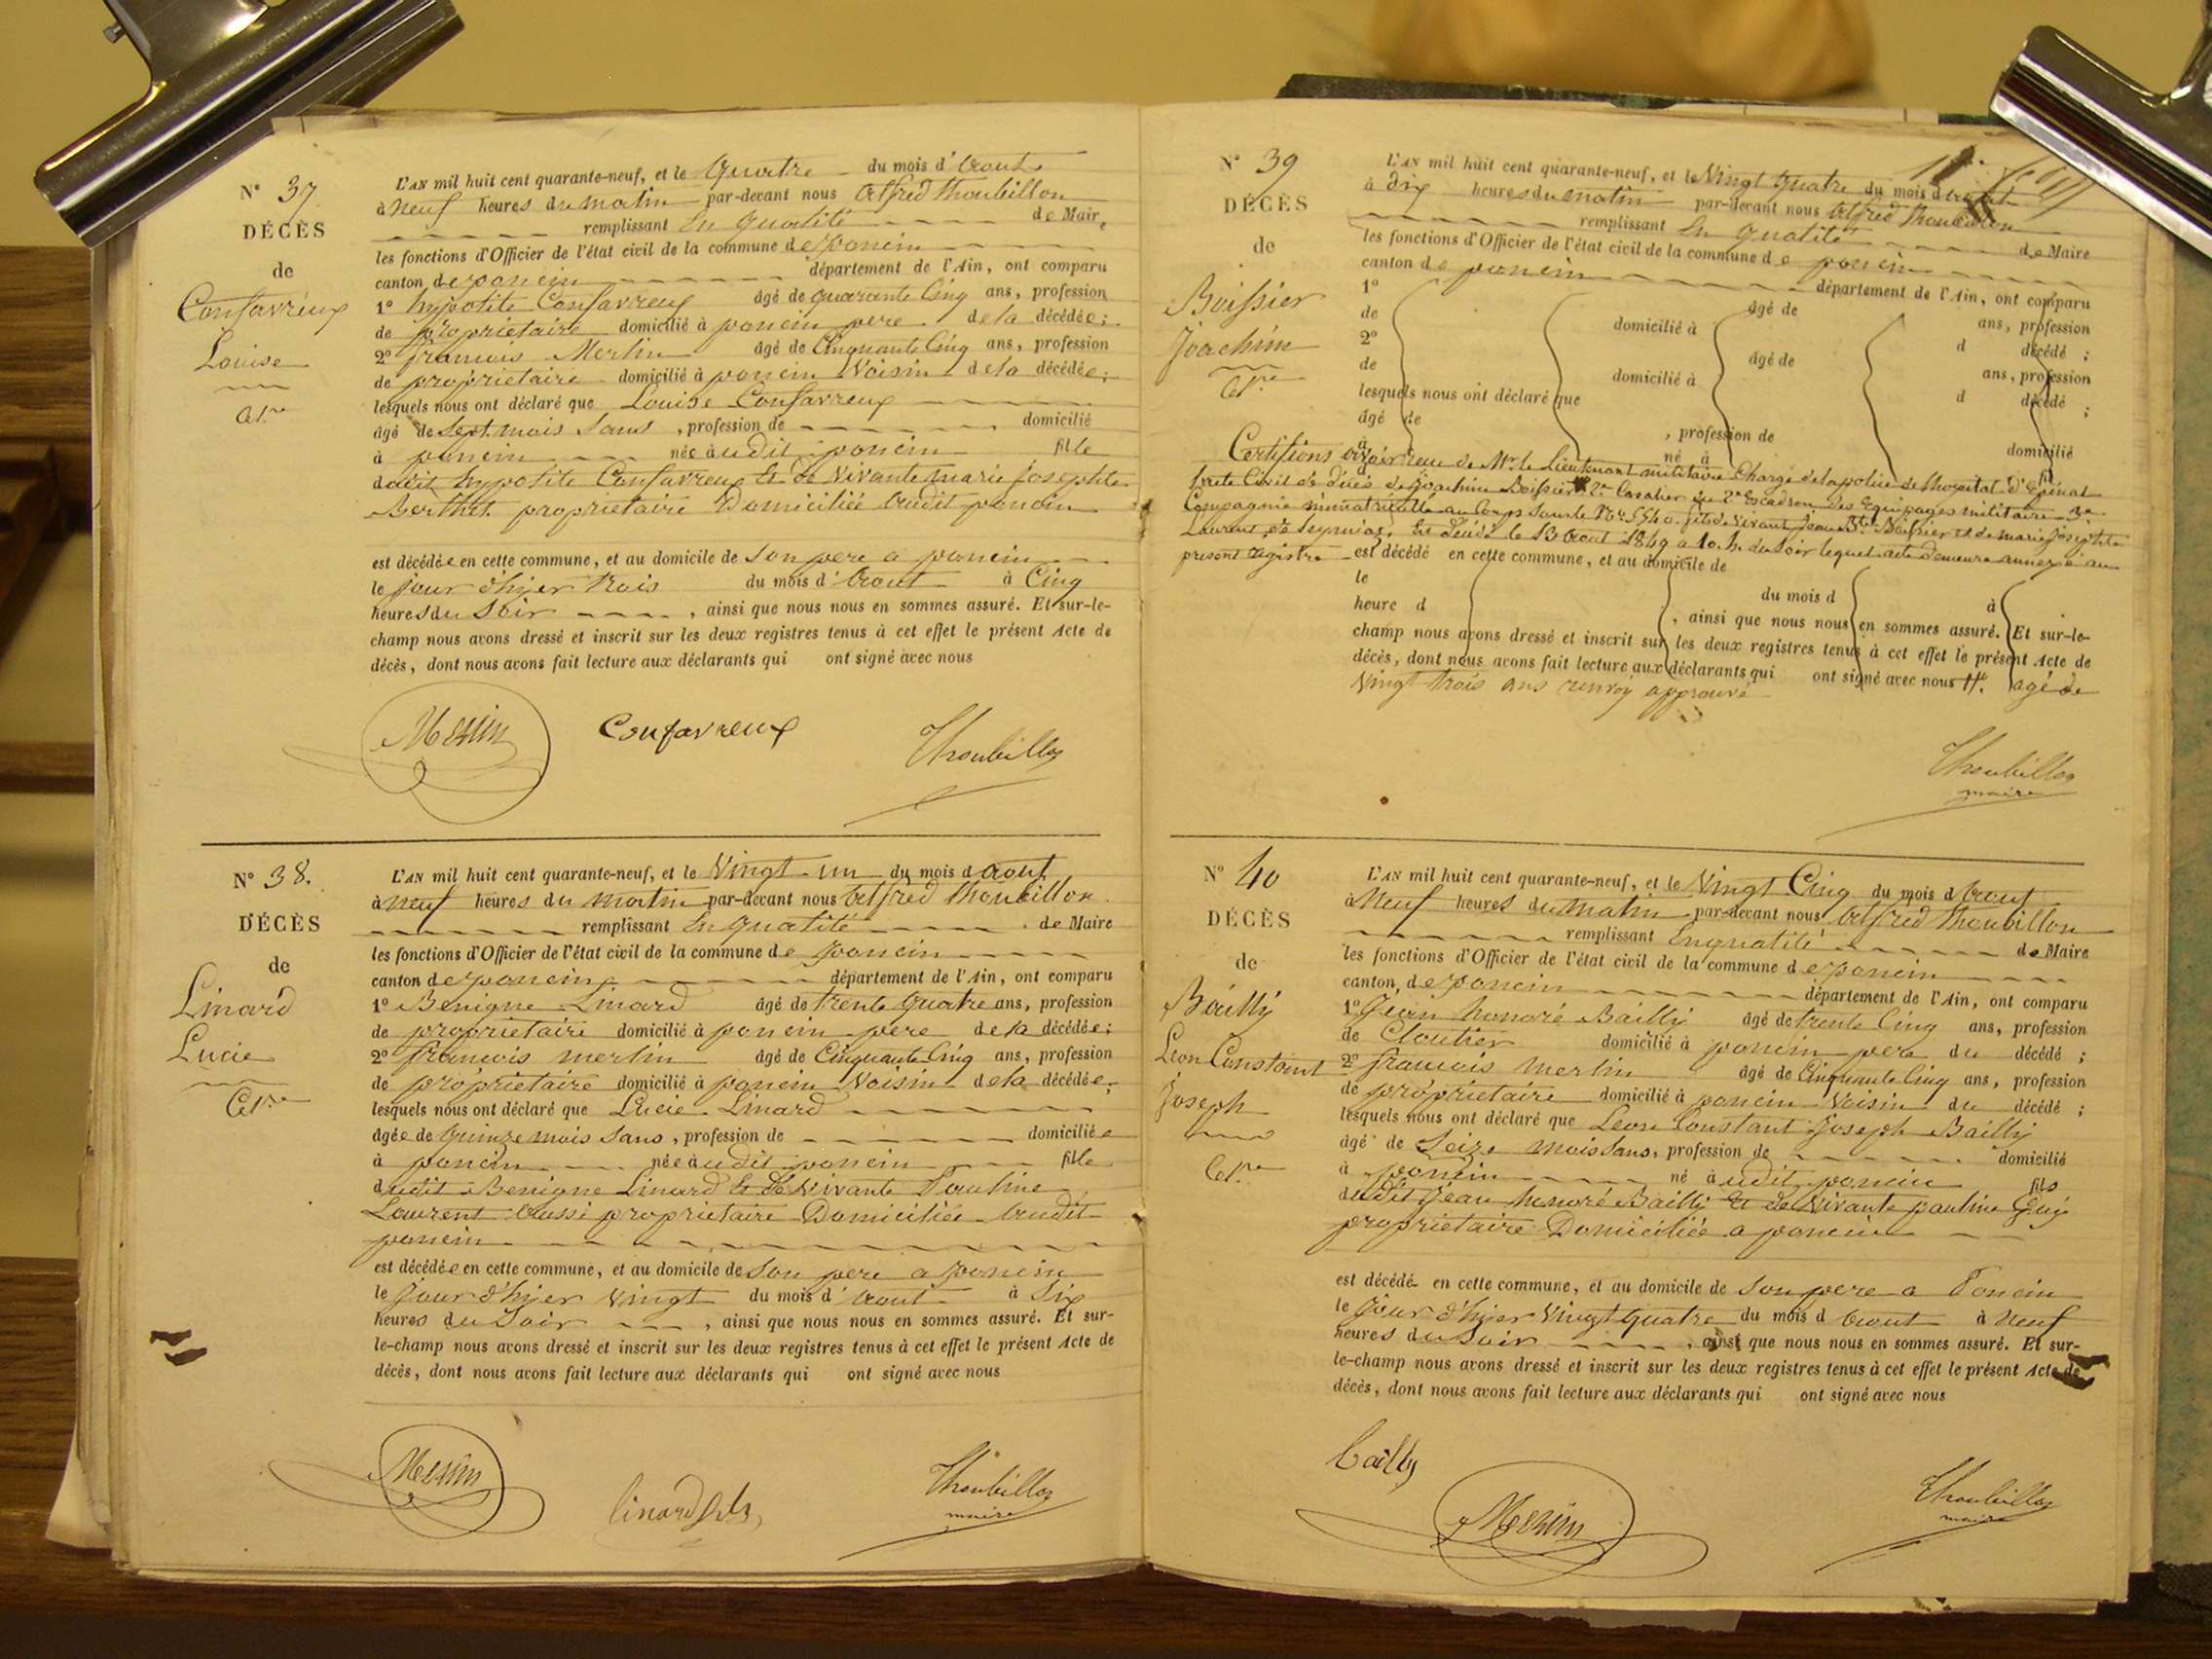 N° 37
DÉCÈS
de
Confavreux
Louise
L'AN mil huit cent quarante-neuf, et le quatre du mois d'Aout
à neuf heures du matin par-devant nous Alfred Thoubillon
remplissant En qualité de Maire
les fonctions d'Officier de l'état civil de la commune de poncin
canton de poncin département de l'Ain, ont comparu
1° hypolite Confavreux âgé de quarante Cinq ans, profession
de propriétaire domicilié à poncin pere de la décédée;
2° francois Merlin âgé de Cinquante Cinq ans, profession
de propriétaire domicilié à poncin Voisin de la décédée;
lesquels nous ont déclaré que Louise Confavreux
âgé de Sept mois Sans, profession de domicilié
à poncin née audit poncin fille
dudit hypolite Confavreux Et de Vivante marie josephte
Berthet propriétaire Domiciliée Audit poncin
est décédée en cette commune, et au domicile de Son pere a poncin
le jour d'hyer trois du mois d'Aout à Cinq
heures du Soir, ainsi que nous nous en sommes assuré. Et sur-le-
champ nous avons dressé et inscrit sur les deux registres tenus à cet effet le présent Acte de
décès, dont nous avons fait lecture aux déclarants qui ont signé avec nous
Merlin Confavreux Thoubillon
N° 38.
DÉCÈS
de
Linard
Lucie
L'AN mil huit cent quarante-neuf, et le Vingt un du mois d'Aout
à neuf heures du matin par-devant nous Alfred Thoubillon
remplissant En qualité de Maire
les fonctions d'Officier de l'état civil de la commune de poncin
canton de poncin département de l'Ain, ont comparu
1° Benigne Linard âgé de trente quatre ans, profession
de propriétaire domicilié à poncin pere de la décédée;
2° francois merlin âgé de Cinquante Cinq ans, profession
de propriétaire domicilié à poncin Voisin de la décédée;
lesquels nous ont déclaré que Lucie Linard
âgée de quinze mois Sans, profession de domiciliée
à poncin née audit poncin fille
dudit Benigne Linard Et de Vivante Pauline
Laurent Aussi propriétaire Domiciliée Audit
poncin
est décédée en cette commune, et au domicile de Son pere a poncin
le jour d'hyer Vingt du mois d'Aout à Six
heures du Soir, ainsi que nous nous en sommes assuré. Et sur-
le-champ nous avons dressé et inscrit sur les deux registres tenus à cet effet le présent Acte de
décès, dont nous avons fait lecture aux déclarants qui ont signé avec nous
Merlin Linard fils Thoubillon
maire
N° 39
DÉCÈS
de
Boissier
Joachim
L'AN mil huit cent quarante-neuf, et le Vingt quatre du mois d'Aout
à dix heures du matin par-devant nous Alfred Thoubillon
remplissant En qualité de Maire
les fonctions d'Officier de l'état civil de la commune de poncin
canton de poncin département de l'Ain, ont comparu
1° âgé de ans, profession
de domicilié à d décédé;
2° âgé de ans, profession
de domicilié à d décédé;
lesquels nous ont déclaré que
âgé de, profession de domicilié
à né à fil
Certifions avoir reçu de Mr. le Lieutenant militaire Chargé de la police de lhopital d'Epinal
de décès de Joachim Boissier 2e Cavalier au 2e Escadron des Equipages militaire 3e
Compagnie immatriculé au Corps sous le No. 5540 fils de Vivant Jean Bte. Boissier et de marie josephte
Laurent Et décédé le 13 Aout 1849 a 10. h. du Soir lequel acte demeure annexé au
present registre est décédé en cette commune, et au domicile de
le du mois d à
heure d, ainsi que nous nous en sommes assuré. Et sur-le-
champ nous avons dressé et inscrit sur les deux registres tenus à cet effet le présent Acte de
décès, dont nous avons fait lecture aux déclarants qui ont signé avec nous agé de
Vingt trois ans renvoy approuvé
Thoubillon
maire
N° 40
DÉCÈS
de
Bailly
Leon Constant
Joseph
L'AN mil huit cent quarante-neuf, et le Vingt Cinq du mois d'Aout
à Neuf heures du matin par-devant nous Alfred Thoubillon
remplissant En qualité de Maire
les fonctions d'Officier de l'état civil de la commune de poncin
canton de poncin département de l'Ain, ont comparu
1° Jean honoré Bailly âgé de trente Cinq ans, profession
de Cloutier domicilié à poncin pere du décédé;
2° francois merlin âgé de Cinquante Cinq ans, profession
de propriétaire domicilié à poncin Voisin du décédé;
lesquels nous ont déclaré que Leon Constant Joseph Bailly
âgé de Seize mois Sans, profession de domicilié
à poncin né audit poncin fils
dudit Jean honoré Bailly Et de Vivante pauline
propriétaire Domiciliée a poncin
est décédé en cette commune, et au domicile de Son pere a Poncin
le jour d'hyer Vingt quatre du mois d'Aout à Neuf
heures du Soir, ainsi que nous nous en sommes assuré. Et sur-
le-champ nous avons dressé et inscrit sur les deux registres tenus à cet effet le présent Acte de
décès, dont nous avons fait lecture aux déclarants qui ont signé avec nous
Bailly Merlin Thoubillon
maire